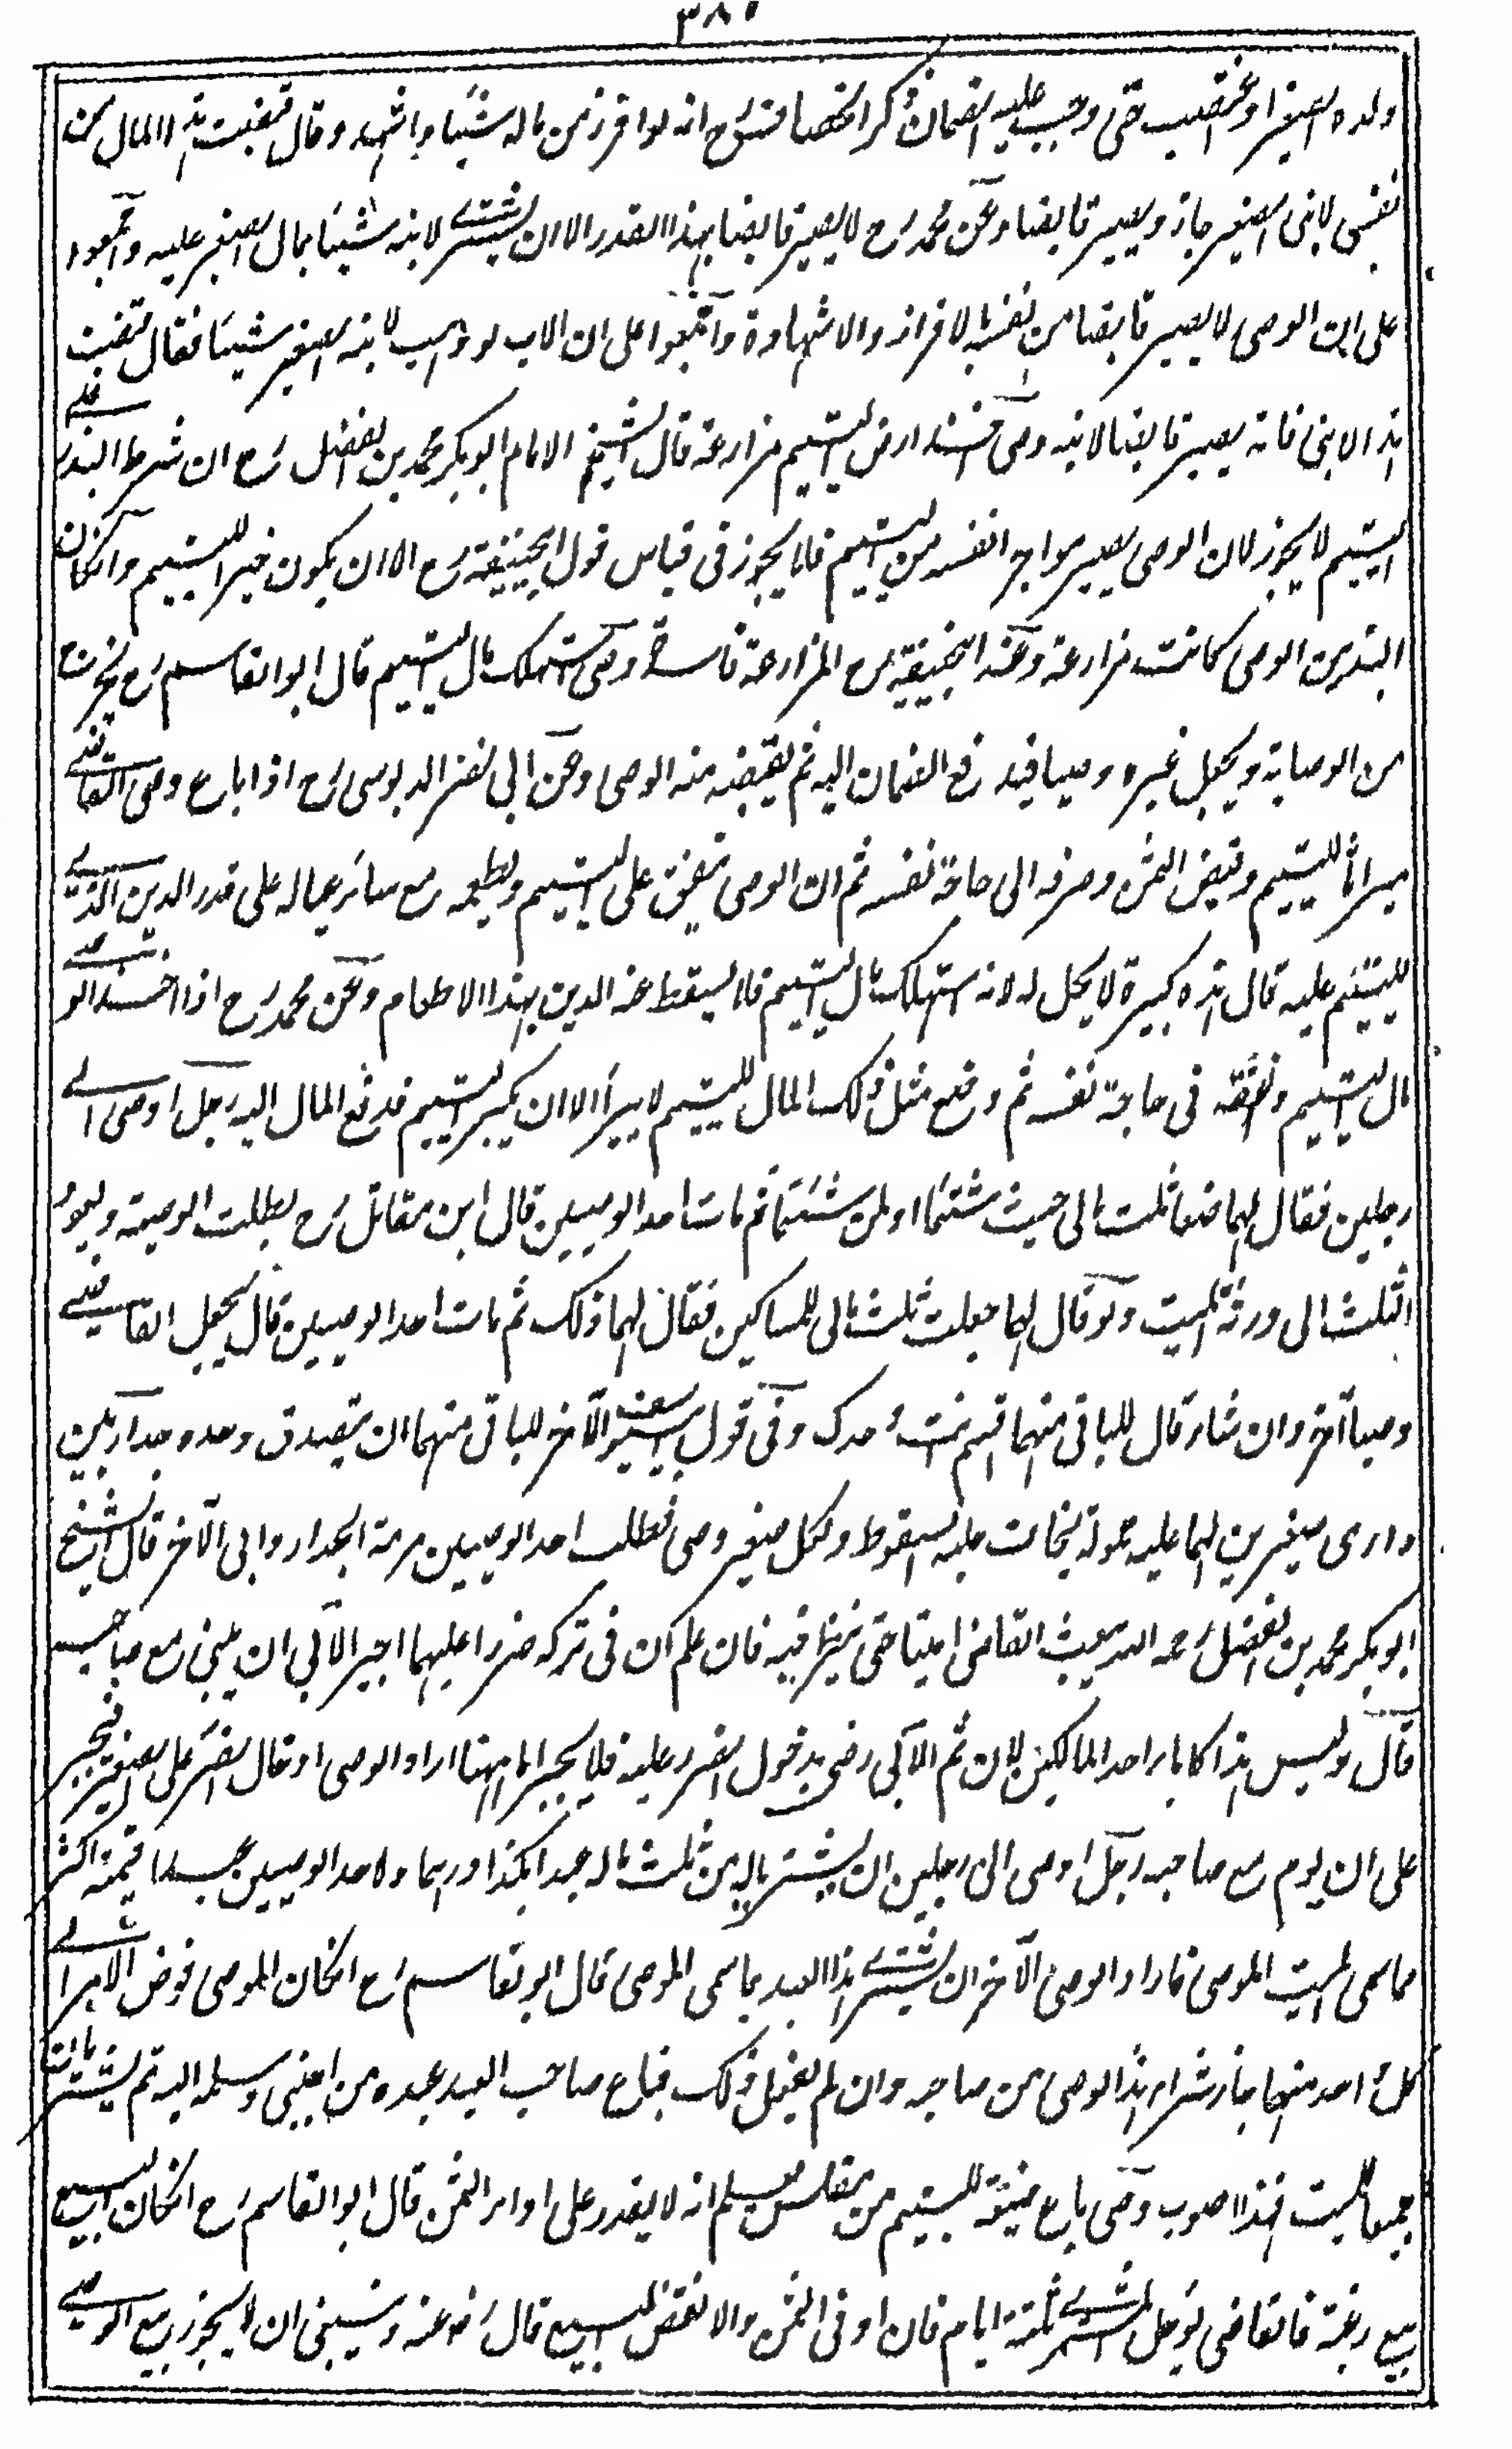 ٣٨٠
ولده الصغير او غصب حتى وجب عليه الضمان ذكر الخصاف رح انه لو افرز من ماله شيئا واشهد وقال قبضت هذا المال من
نفسي لابني الصغير جاز ويصير قابضا وعن محمد رح لا يصير قابضا بهذا القدر الا ان يشتري لابنه شيئا بمال الصغير عليه واجمعوا
على ان الوصى لا يصير قابضا من نفسه بالافراز والاشهاد واجمعوا على ان الاب لو وهب لابنه الصغير شيئا فقال قبضت
هذا لابنى فانه يصير قابضا لابنه وصى اخذ ارض اليتيم مزارعة قال الشيخ الامام ابوبكر محمد بن الفضل رح ان شرط البذر على
اليتيم لا يجوز لان الوصى يصير مواجرا نفسه من اليتيم فلا يجوز فى قياس قول ابيحنيفة رح الا ان يكون خيرا لليتيم وانكان
البذر من الوصى كانت مزارعة وعند ابيحنيفة رح المزارعة فاسدة وصى استهلك مال اليتيم قال ابو القاسم رح يخرج
من الوصاية ويجعل غيره وصيا فيدفع الضمان اليه ثم يقبضه منه الوصى وعن ابى نصر الدبوسى رح اذا باع وصى القاضى
ميراثا لليتيم وقبض الثمن وصرفه الى حاجة نفسه ثم ان الوصى ينفق على اليتيم ويطعمه مع سائر عياله على قدر الدين الذى
لليتيم عليه قال هذه كبيرة لا يحل له لانه استهلك مال اليتيم فلا يسقط عنه الدين بهذا الاطعام وعن محمد رح اذا اخذ الوصى
مال اليتيم وانفقه فى حاجة نفسه ثم وضع مثل ذلك المال لليتيم لا يبرأ الا ان يكبر اليتيم فدفع المال اليه رجل اوصى الى
رجلين فقال لهما ضعا ثلث مالى حيث شئتما او لمن شئتما ثم مات احد الوصيين قال ابن مقاتل رح بطلت الوصية ويعود
الثلث الى ورثة الميت ولو قال لهما جعلت ثلث مالى للمساكين فقال لهما ذلك ثم مات احد الوصيين قال يجعل القاضى
وصيا آخر وان شاء قال للباقى منهما اقسم انت وحدك وفى قول ابى يوسف الآخر للباقى منهما ان يتصدق وحده جدار بين
دارى صغيرين لهما عليه حمولة يخاف عليه السقوط ولكل صغير وصى فطلب احد الوصيين مرمة الجدار وابى الآخر قال الشيخ
ابوبكر محمد بن الفضل رحمه الله يبعث القاضى امينا حتى ينظر فيه فان علم ان فى تركه ضررا عليهما اجبر الآبى ان يبنى مع صاحبه
قال وليس هذا كاباء احد المالكين لان ثم الآبى رضى بدخول الضرر عليه فلا يجبر اما ههنا اراد الوصى ادخال الضرر على الصغير فيجبر
على ان يرم مع صاحبه رجل اوصى الى رجلين ان يشتريا له من ثلث ماله عبدا بكذا درهما ولاحد الوصيين عبد قيمته اكثر
مما سمى الميت الموصى فاراد الوصى الآخر ان يشترى هذا العبد بما سمى الموصى قال ابو القاسم رح انكان الموصى فوض الامر الى
كل احد منهما جاز شراء هذا الوصى من صاحبه وان لم يفعل ذلك فباع صاحب العبد عبده من اجنبى وسلمه اليه ثم يشتريان
جميعا للميت فهذا اصوب وصى باع ضيعة لليتيم من مفلس يعلم انه لا يقدر على اداء الثمن قال ابو القاسم رح انكان البيع
بيع رغبة فالقاضى يؤجل المشترى ثلثة ايام فان اوفى الثمن والا نقض البيع قال رضى عنه وينبغى ان لا يجوز بيع الوصى